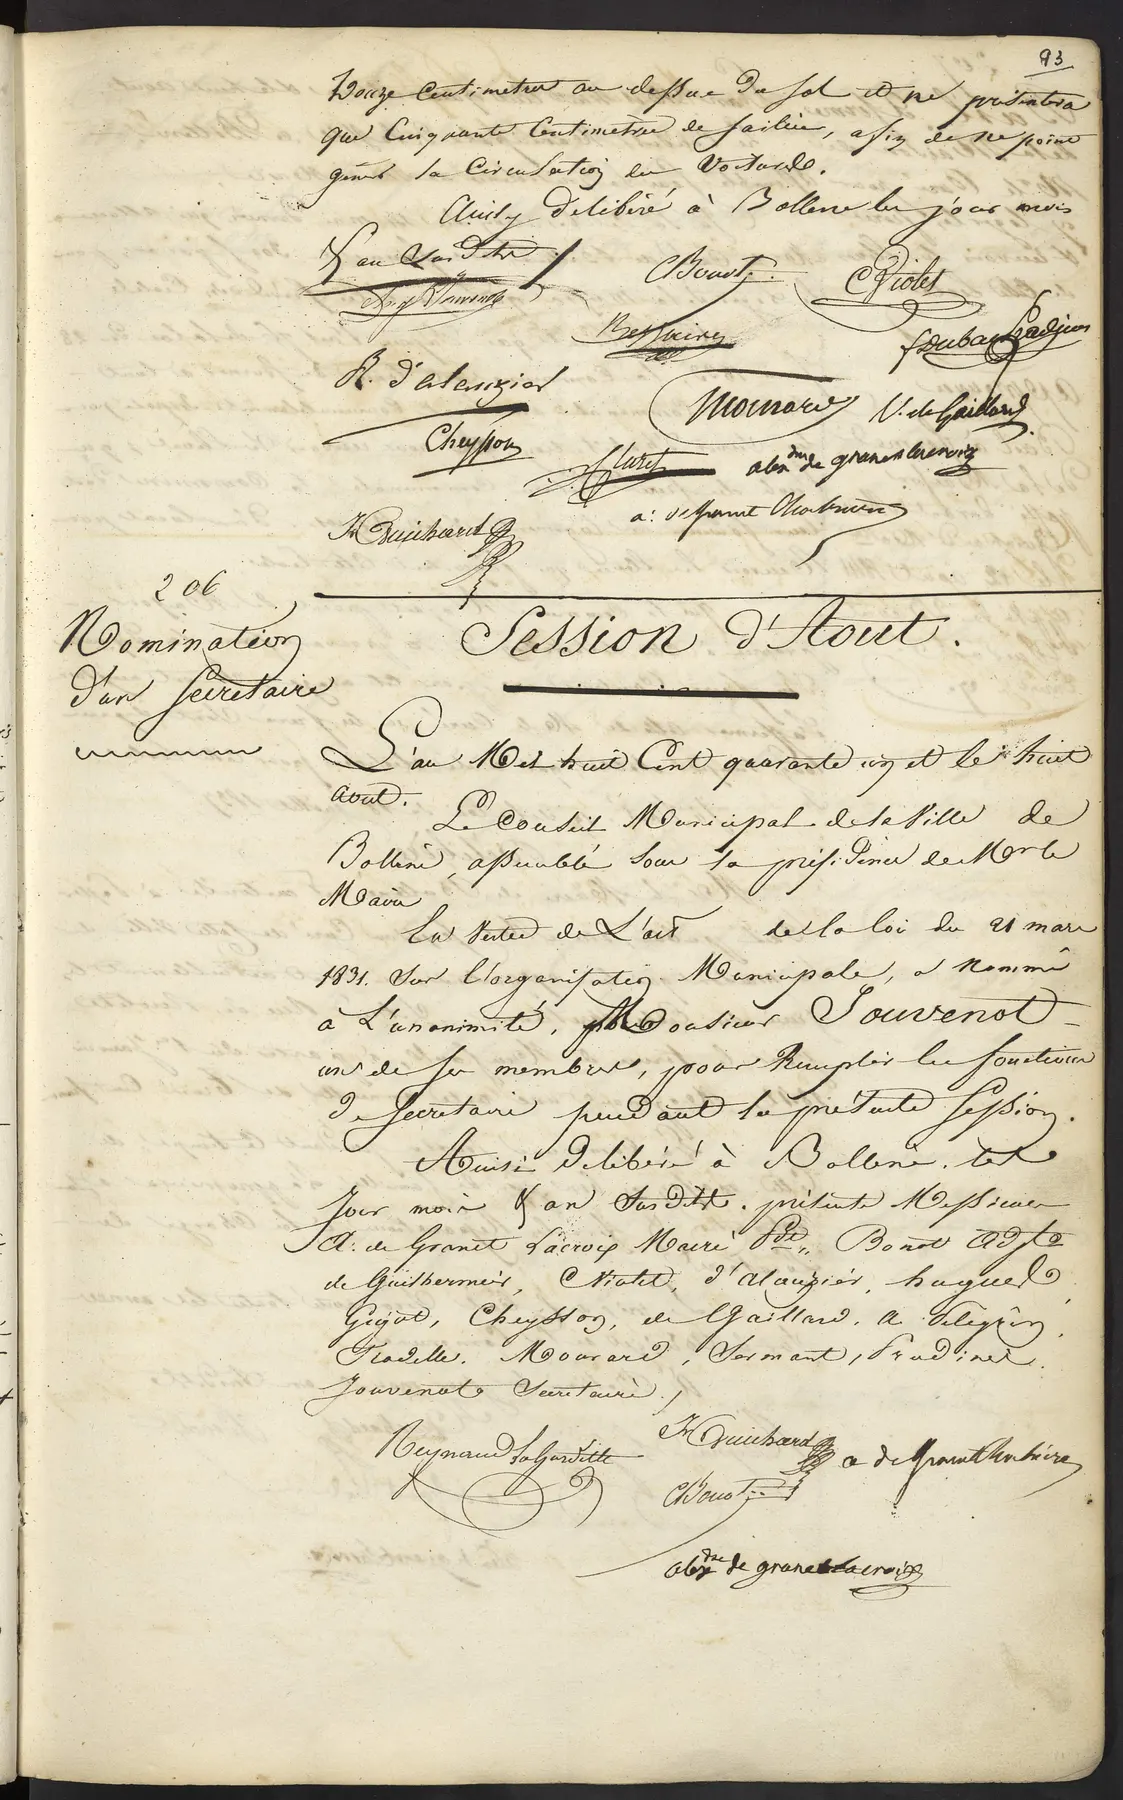 93
Douze Centimetres au dessus du sol et ne présentera
que Cinquante Centimetres de saillie, afin de ne point
gêner la Circulation des Voitures.
Ainsy Délibéré à Bollene les jour mois
& an Susdits.
CBonot
CViolet
R. d'alauzier
Monard
V. de Gaillard
Cheysson
alexdre de granet lacroix
a: de granet
JnGuichard
206
Nomination
d'un Secretaire
Session d'Aout.
L'an Mil huit Cent quarante un et le huit
aout.
Le Conseil Municipal de la Ville de
Bollène, assemblé sous la présidence de Mr le
Maire
En Vertu de L'art de la loi du 21 mars
1831. Sur l'organisation Municipale, a nommé
à L'unanimité, Monsieur Jouvenot
un de ses membres, pour Remplir les fonctions
de Secretaire pendant la présente Session.
Ainsi Délibéré à Bollene. les
Jour mois & an Susdits. présents Messieurs
A. de Granet Lacroix Maire Pdt,, Bonot Adjt
de Guilhermier, CViolet, d'alauzier, hugues
Gigot, Cheysson, de Gaillard. A Pelegrin,
Fradelle. Monard, Sermant, Prudiner.
Jouvenot Secretaire.
Reynaud LaGardette
JnGuichard
a de Granet
CBonot
alexdre de granet lacroix